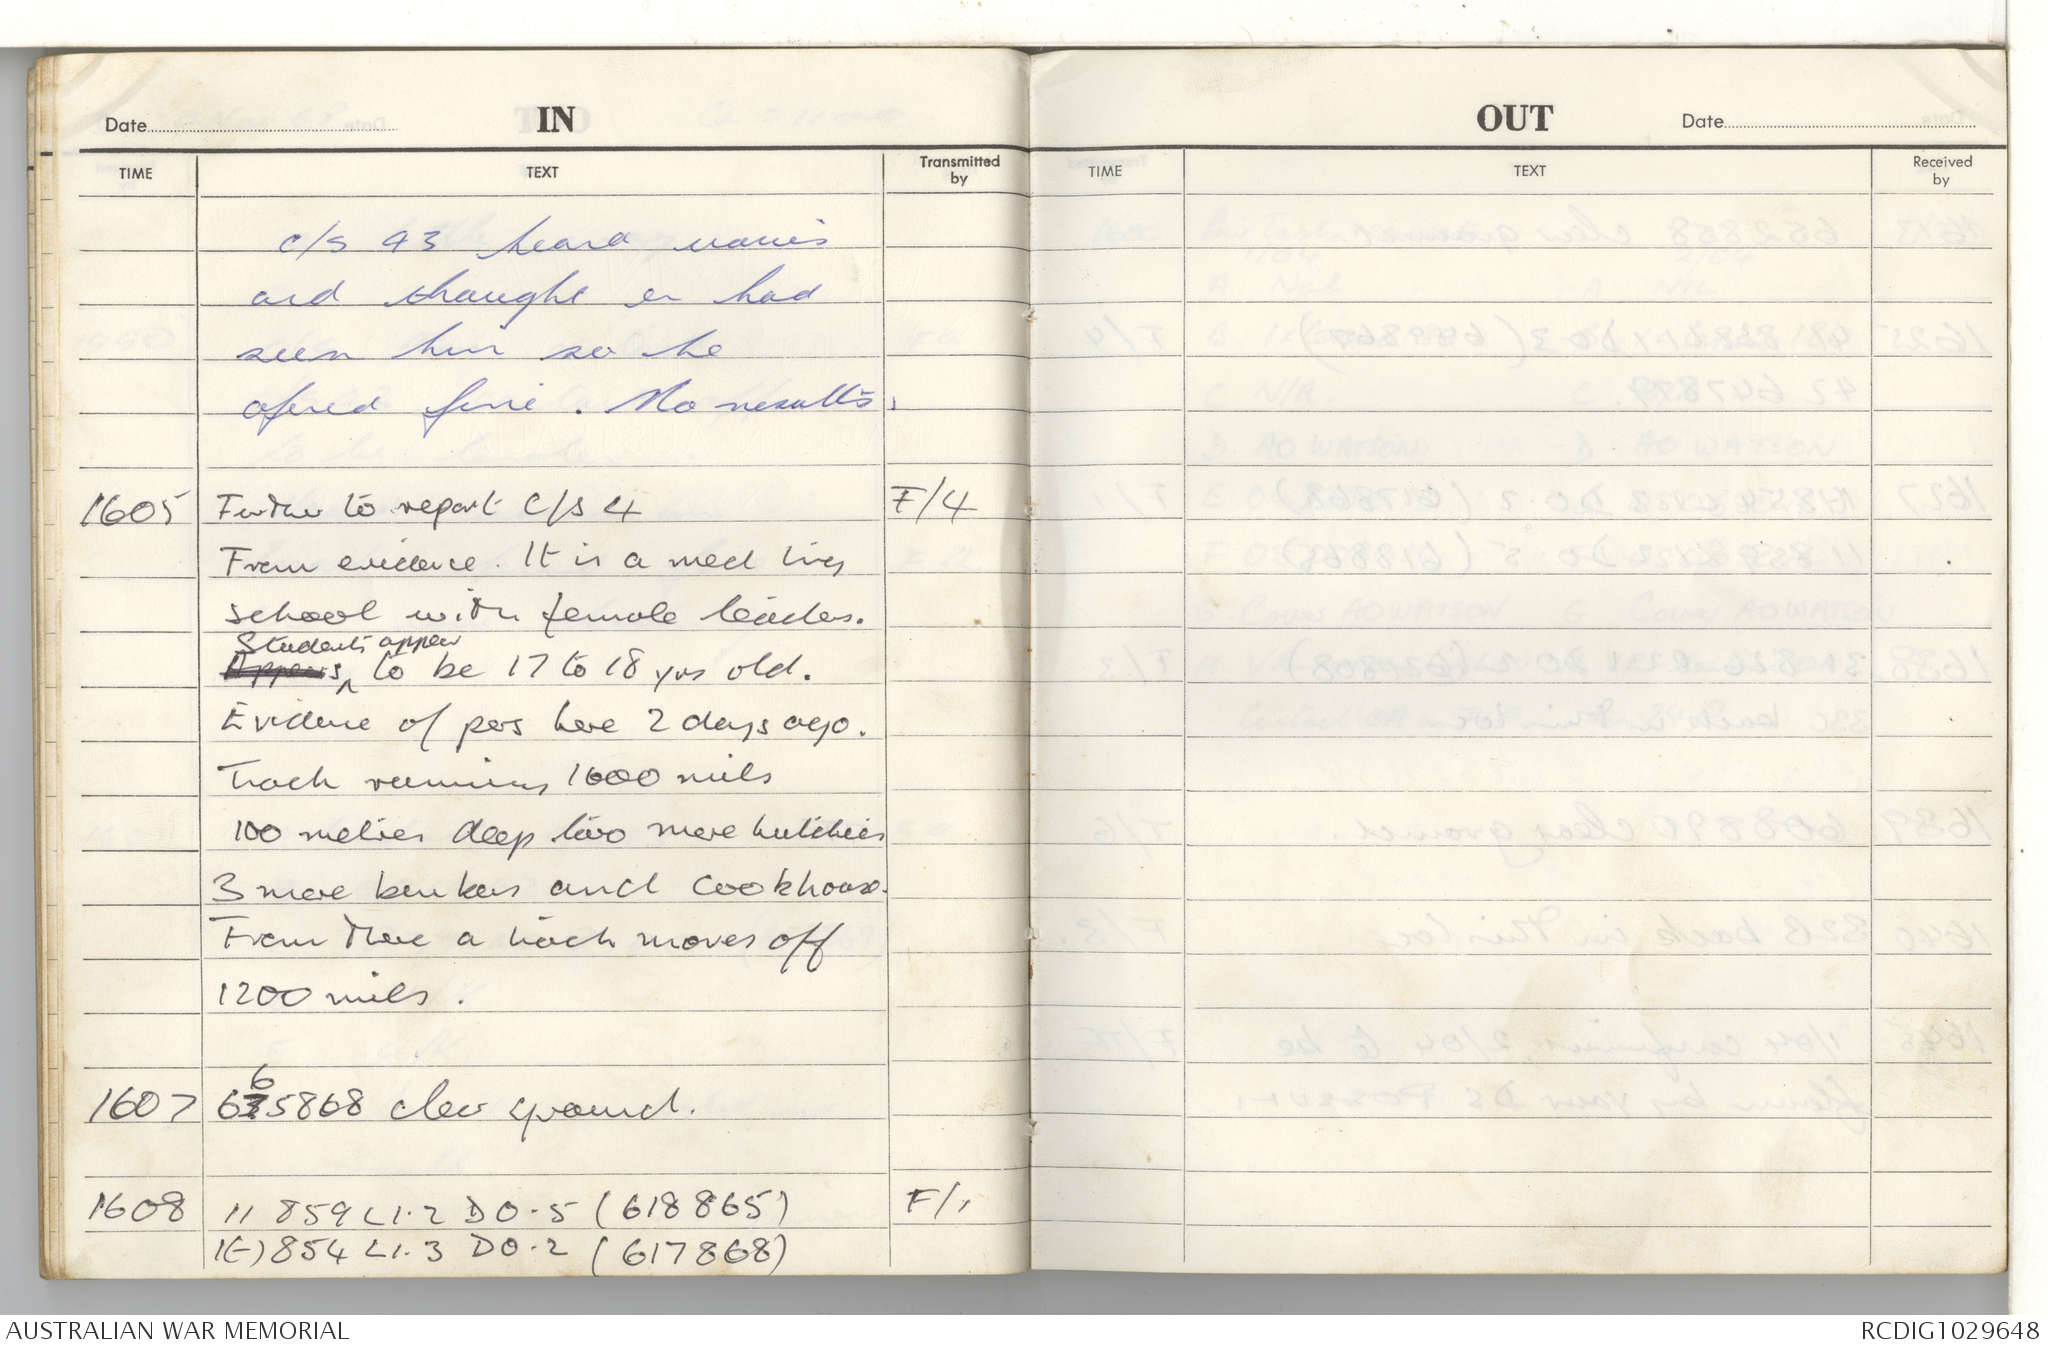 Date
IN
TIME
TEXT
Transmitted by
c/s 43 heard
and thought en had
seen him so he
fire. No results.
1605 Further to report C/S 4 F/4
From evidence. It is a med
school with female leaders.
Students appear
to be 17 to 18 yrs old.
Evidence of pers here 2 days ago.
Track running 1600 mils
100 metres deep two more hutchies
3 more bunkers and cookhouse.
From there a track moves off
1200 mils.
6
1607 6 5868 clear ground.
1608 11 859 L1.2 DO.5 (618865) F/1
1(-) 854 L1.3 DO.2 (617868)
OUT
Date
TIME
TEXT
Received by
AUSTRALIAN WAR MEMORIAL
RCDIG1029648